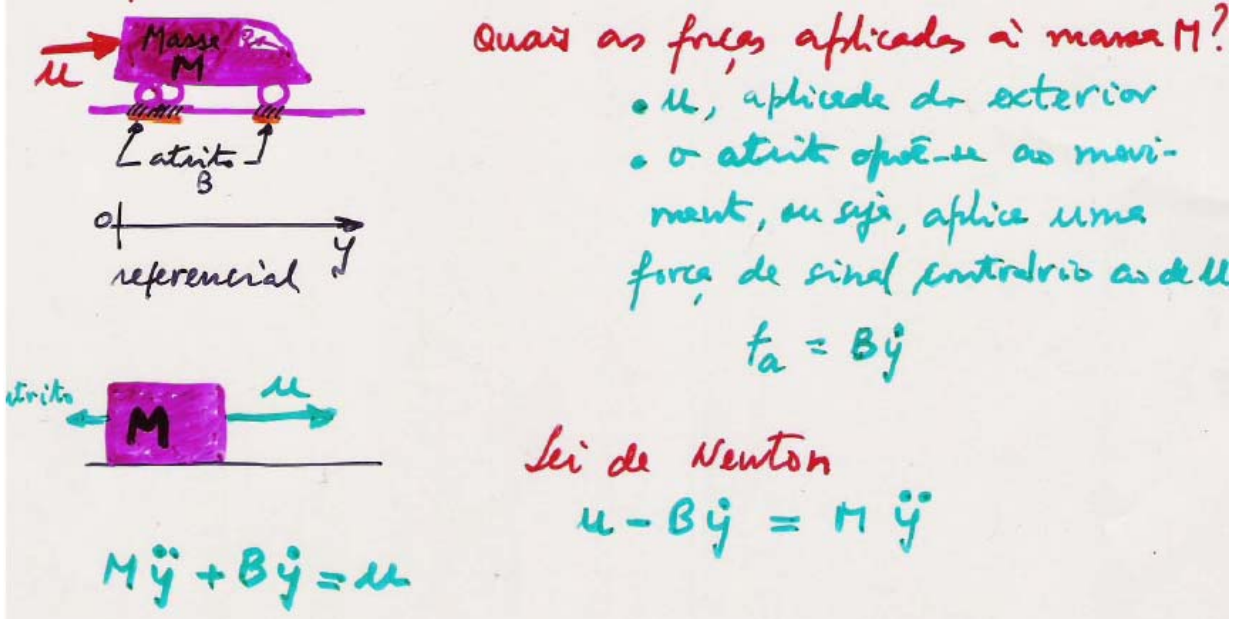 Masse
M
u
atrito
B
0
y
referencial
Quais as forças aplicadas à massa M?
• u, aplicada do exterior
• o atrito opõe-se ao movi-
mento, ou seja, aplica uma
força de sinal contrário ao de u
fa = Bẏ
atrito
M
u
Lei de Newton
u - Bẏ = M ÿ
Mÿ + Bẏ = u